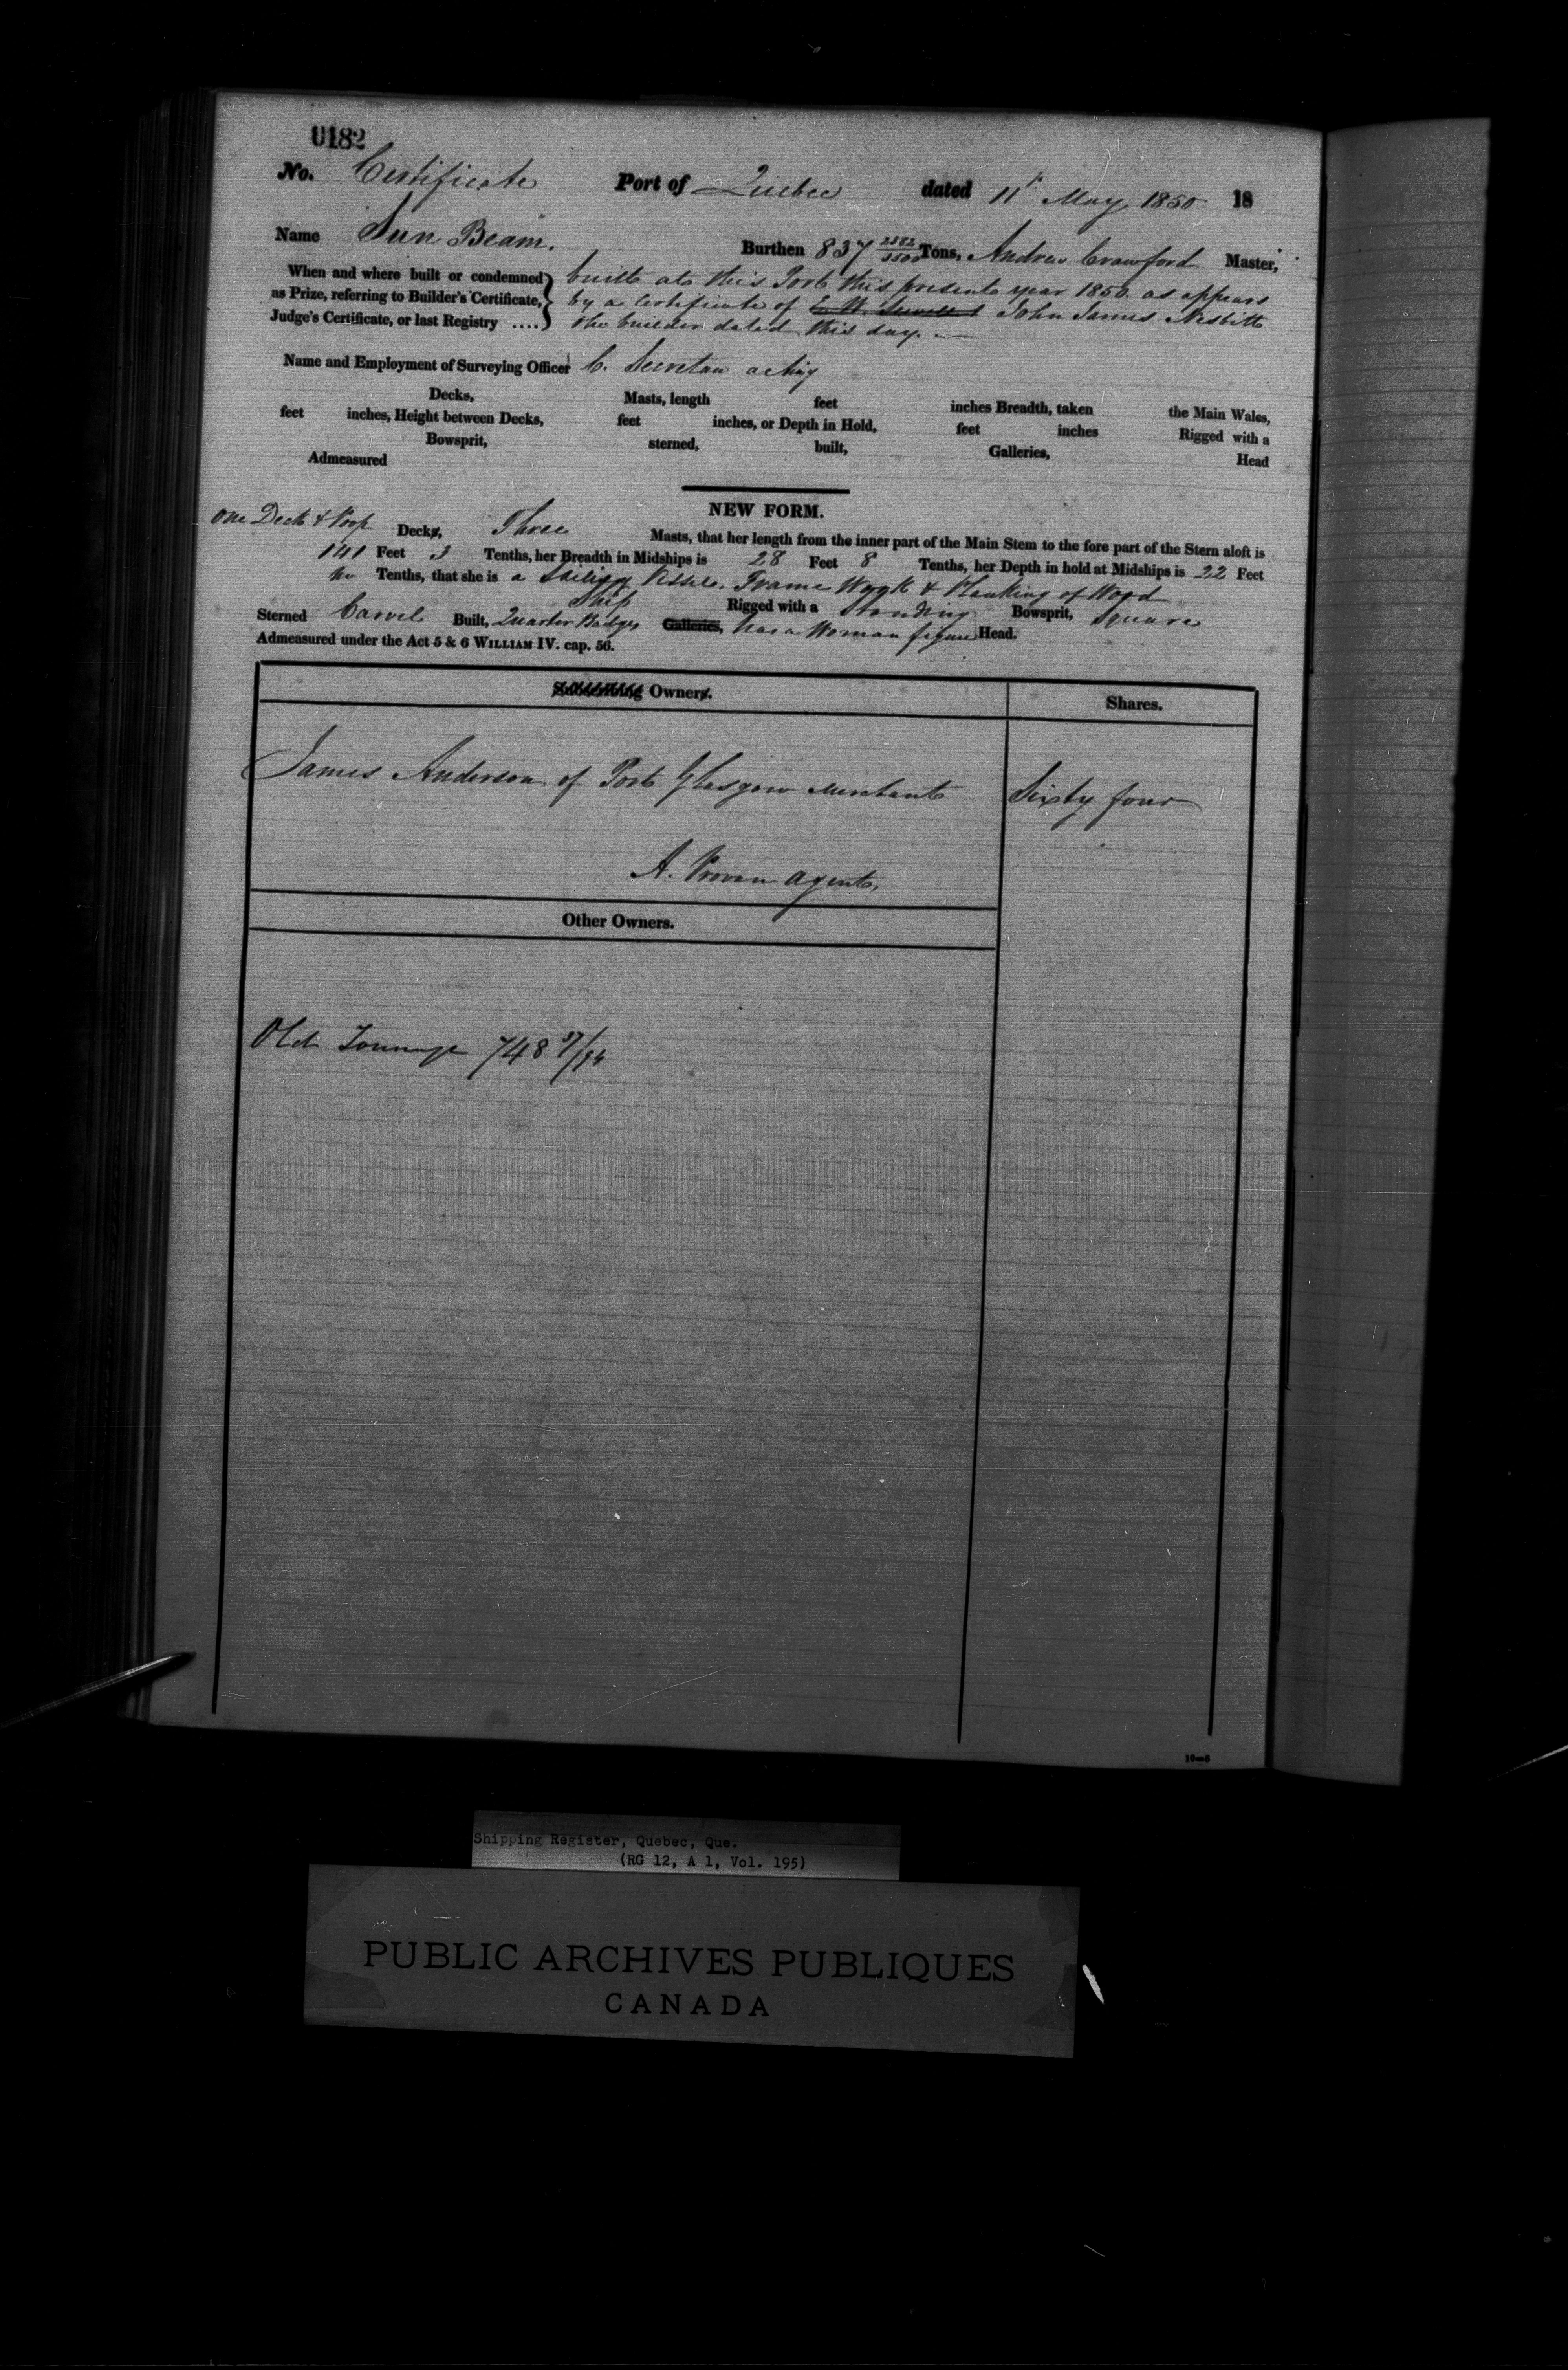 0182
No. Certificate Port of Quebec dated 11th May 1850 18
Name Sun Beam. Burthen 837 2382/3500 Tons, Andrew Crawford Master,
When and where built or condemned built at this Port this present year 1850 as appears
as Prize, referring to Builder's Certificate, by a Certificate of John James Nesbitt
Judge's Certificate, or last Registry .... the builder dated this day.
Name and Employment of Surveying Officer C. Secretan acting
Decks, Masts, length feet inches Breadth, taken the Main Wales,
feet inches, Height between Decks, feet inches, or Depth in Hold, feet inches Rigged with a
Bowsprit, sterned, built, Galleries, Head
Admeasured
NEW FORM.
One Deck & Poop Decks, Three Masts, that her length from the inner part of the Main Stem to the fore part of the Stern aloft is
141 Feet 3 Tenths, her Breadth in Midships is 28 Feet 8 Tenths, her Depth in hold at Midships is 22 Feet
no Tenths, that she is a Sailing Vessel. Frame Work & Planking of Wood
Ship Rigged with a Standing Bowsprit, Square
Sterned Carvel Built, Quarter Badges Galleries, has a Woman figure Head.
Admeasured under the Act 5 & 6 WILLIAM IV. cap. 56.
Subscribing Owners. Shares.
James Anderson of Port Glasgow Merchant Sixty four
A. Provan Agent,
Other Owners.
Old Tonnage 748 37/94
10—5
Shipping Register, Quebec, Que.
(RG 12, A 1, Vol. 195)
PUBLIC ARCHIVES PUBLIQUES
CANADA